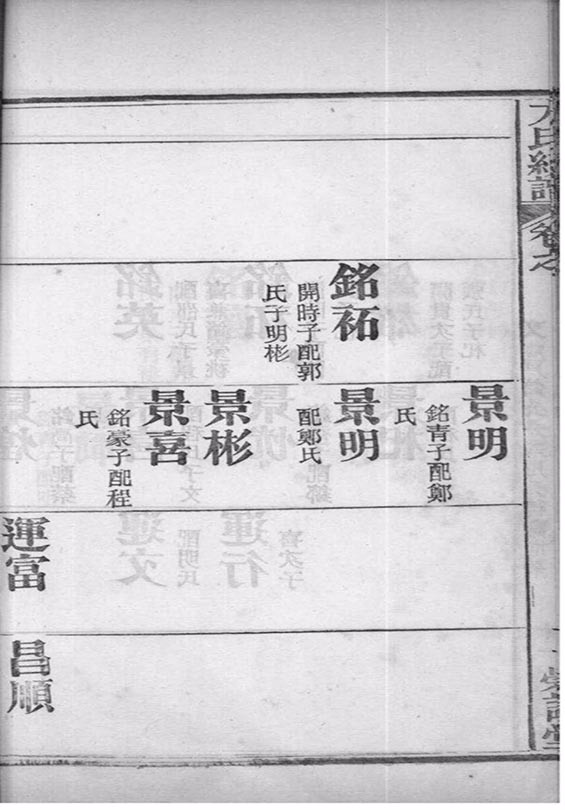 氏
卷之
銘祏
開時子配郭
氏子明彬
景明
銘青子配鄭
氏
景明
配鄭氏
景彬
景喜
銘豪子配程
氏
運富
昌順